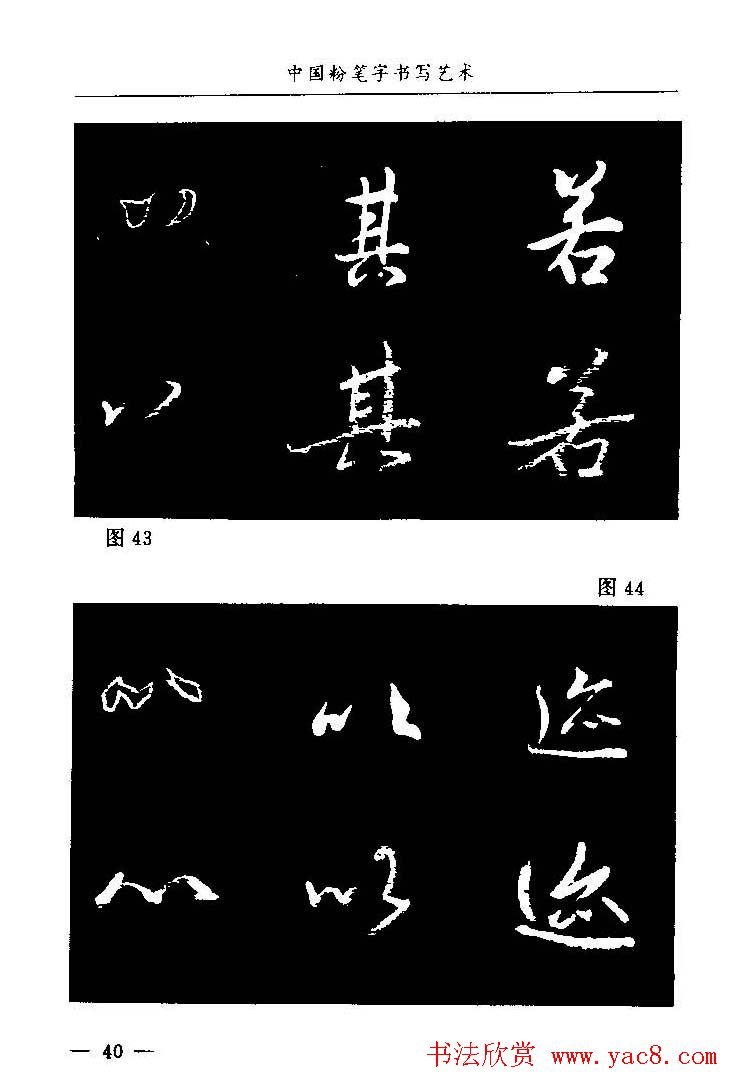 中国粉笔字书写艺术
其 若
其 若
图 43
图 44
以 迹
以 迹
— 40 —
书法欣赏 www.yac8.com